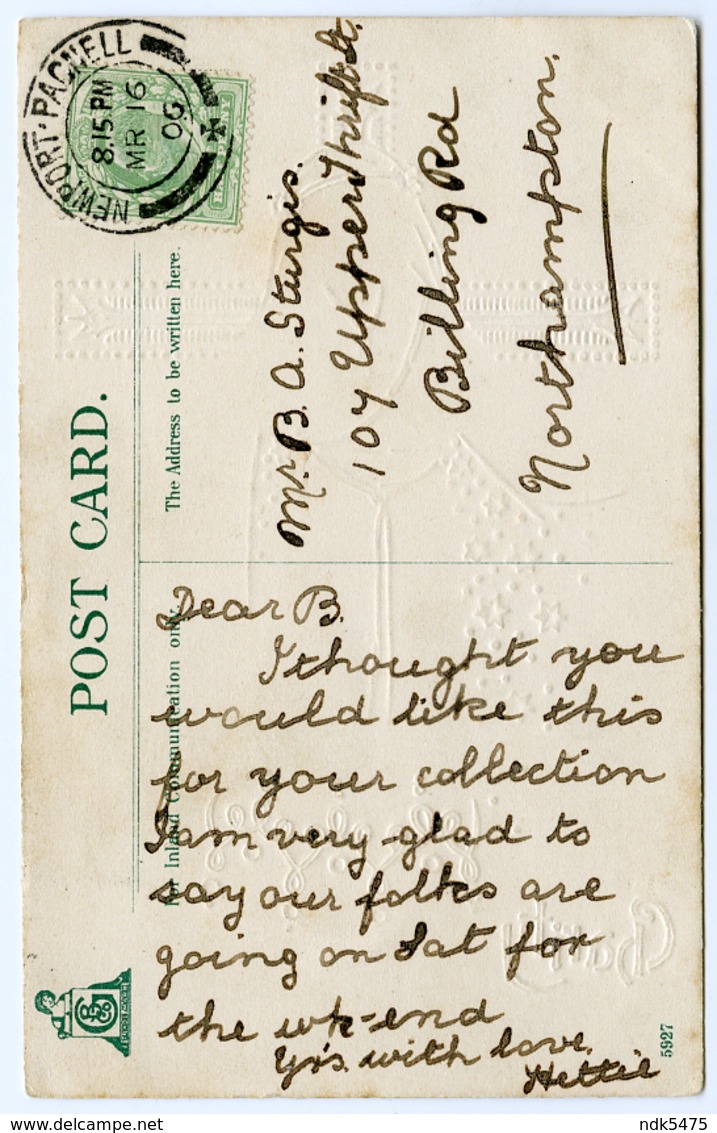 NEWPORT-PAGNELL
8.15 PM
MR 16
06
POST CARD.
The Address to be written here.
For Inland Communication only.
Mr. B. A. Sturgis.
107 Upper Thrift St.
Billing Rd
Northampton.
Dear B.
I thought you
would like this
for your collection
I am very glad to
say our folks are
going on Sat for
the wk-end
Yrs. with love.
Hettie
Charity
5927
delcampe.net
ndk5475